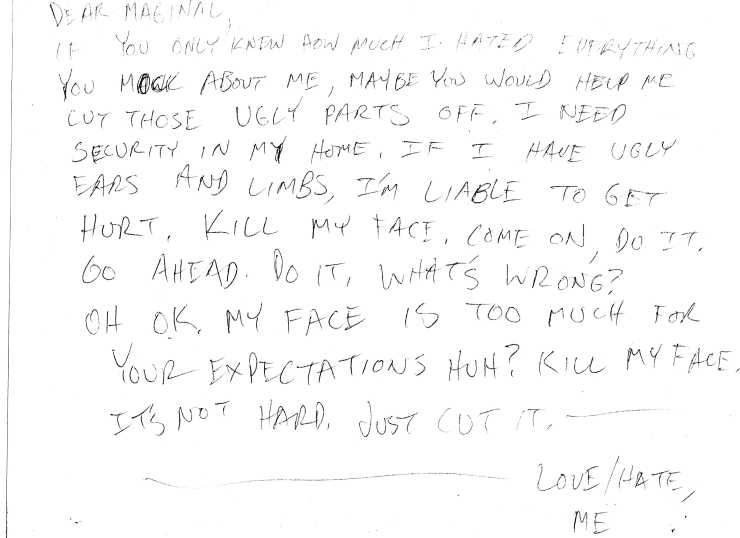 DEAR MAGINAL,
IF YOU ONLY KNEW HOW MUCH I HATED EVERYTHING
YOU MOCK ABOUT ME, MAYBE YOU WOULD HELP ME
CUT THOSE UGLY PARTS OFF. I NEED
SECURITY IN MY HOME. IF I HAVE UGLY
EARS AND LIMBS, I'M LIABLE TO GET
HURT. KILL MY FACE. COME ON, DO IT.
GO AHEAD. DO IT, WHAT'S WRONG?
OH OK. MY FACE IS TOO MUCH FOR
YOUR EXPECTATIONS HUH? KILL MY FACE.
IT'S NOT HARD. JUST CUT IT.
LOVE/HATE,
ME